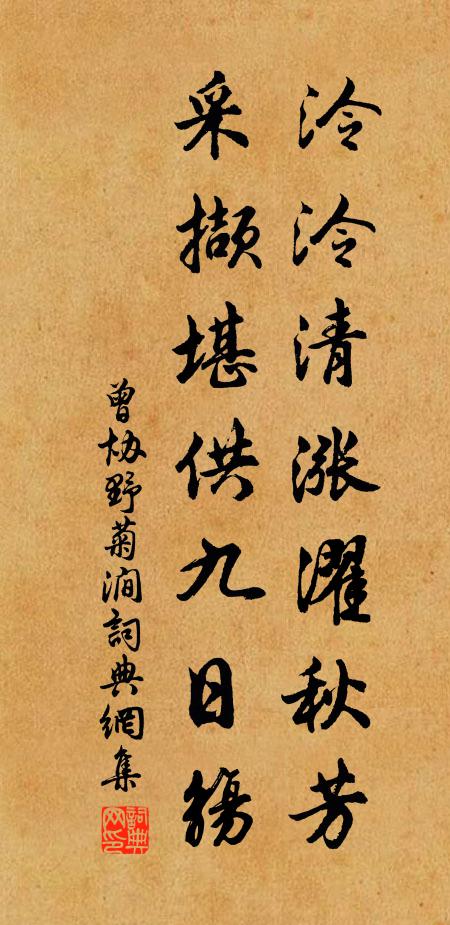 泠泠清漲濯秋芳
采擷堪供九日觴
曾協野菊澗詞典網集
詞典网印